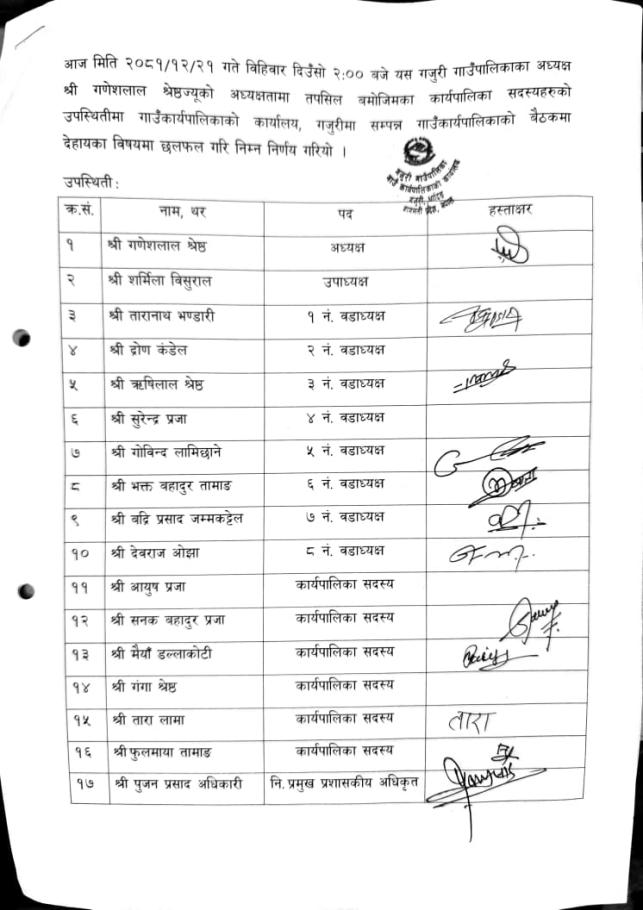 आज मिति २०८१/१२/२१ गते विहिवार दिउँसो २:०० बजे यस गजुरी गाउँपालिकाका अध्यक्ष
श्री गणेशलाल श्रेष्ठज्यूको अध्यक्षतामा तपसिल बमोजिमका कार्यपालिका सदस्यहरुको
उपस्थितीमा गाउँकार्यपालिकाको कार्यालय, गजुरीमा सम्पन्न गाउँकार्यपालिकाको बैठकमा
देहायका विषयमा छलफल गरि निम्न निर्णय गरियो ।
गजुरी गाउँपालिका
गाउँ कार्यपालिकाको कार्यालय
गजुरी, धादिङ
बागमती प्रदेश, नेपाल
उपस्थिती:
क्र.सं. नाम, थर पद हस्ताक्षर
१ श्री गणेशलाल श्रेष्ठ अध्यक्ष
२ श्री शर्मिला बिसुराल उपाध्यक्ष
३ श्री तारानाथ भण्डारी १ नं. वडाध्यक्ष
४ श्री द्रोण कंडेल २ नं. वडाध्यक्ष
५ श्री ऋषिलाल श्रेष्ठ ३ नं. वडाध्यक्ष
६ श्री सुरेन्द्र प्रजा ४ नं. वडाध्यक्ष
७ श्री गोविन्द लामिछाने ५ नं. वडाध्यक्ष
८ श्री भक्त बहादुर तामाङ ६ नं. वडाध्यक्ष
९ श्री बद्रि प्रसाद जम्मकट्टेल ७ नं. वडाध्यक्ष
१० श्री देवराज ओझा ८ नं. वडाध्यक्ष
११ श्री आयुष प्रजा कार्यपालिका सदस्य
१२ श्री सनक बहादुर प्रजा कार्यपालिका सदस्य
१३ श्री मैयाँ डल्लाकोटी कार्यपालिका सदस्य
१४ श्री गंगा श्रेष्ठ कार्यपालिका सदस्य
१५ श्री तारा लामा कार्यपालिका सदस्य तारा
१६ श्री फुलमाया तामाङ कार्यपालिका सदस्य
१७ श्री पुजन प्रसाद अधिकारी नि. प्रमुख प्रशासकीय अधिकृत